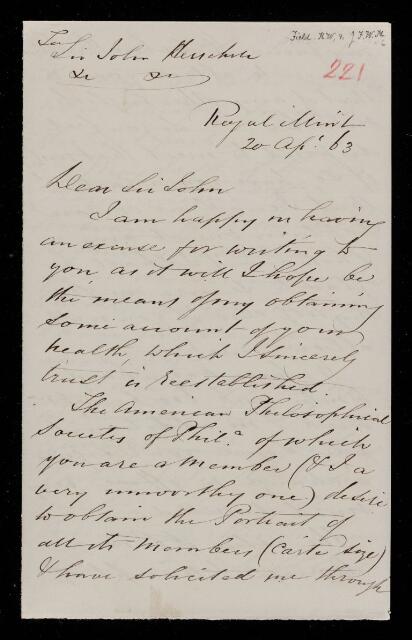 Field. R.W. 2. J.F.W.H.
To
Sir John Herschel
&c &c
221
Royal Mint
20 Apl. 63
Dear Sir John
I am happy in having
an excuse for writing to
you as it will I hope be
the means of my obtaining
some account of your
health, which I sincerely
trust is reestablished.
The American Philosophical
Societies of Phil.a of which
you are a member (& I a
very unworthy one) desire
to obtain the Portrait of
all its members (carte size)
& have solicited me through